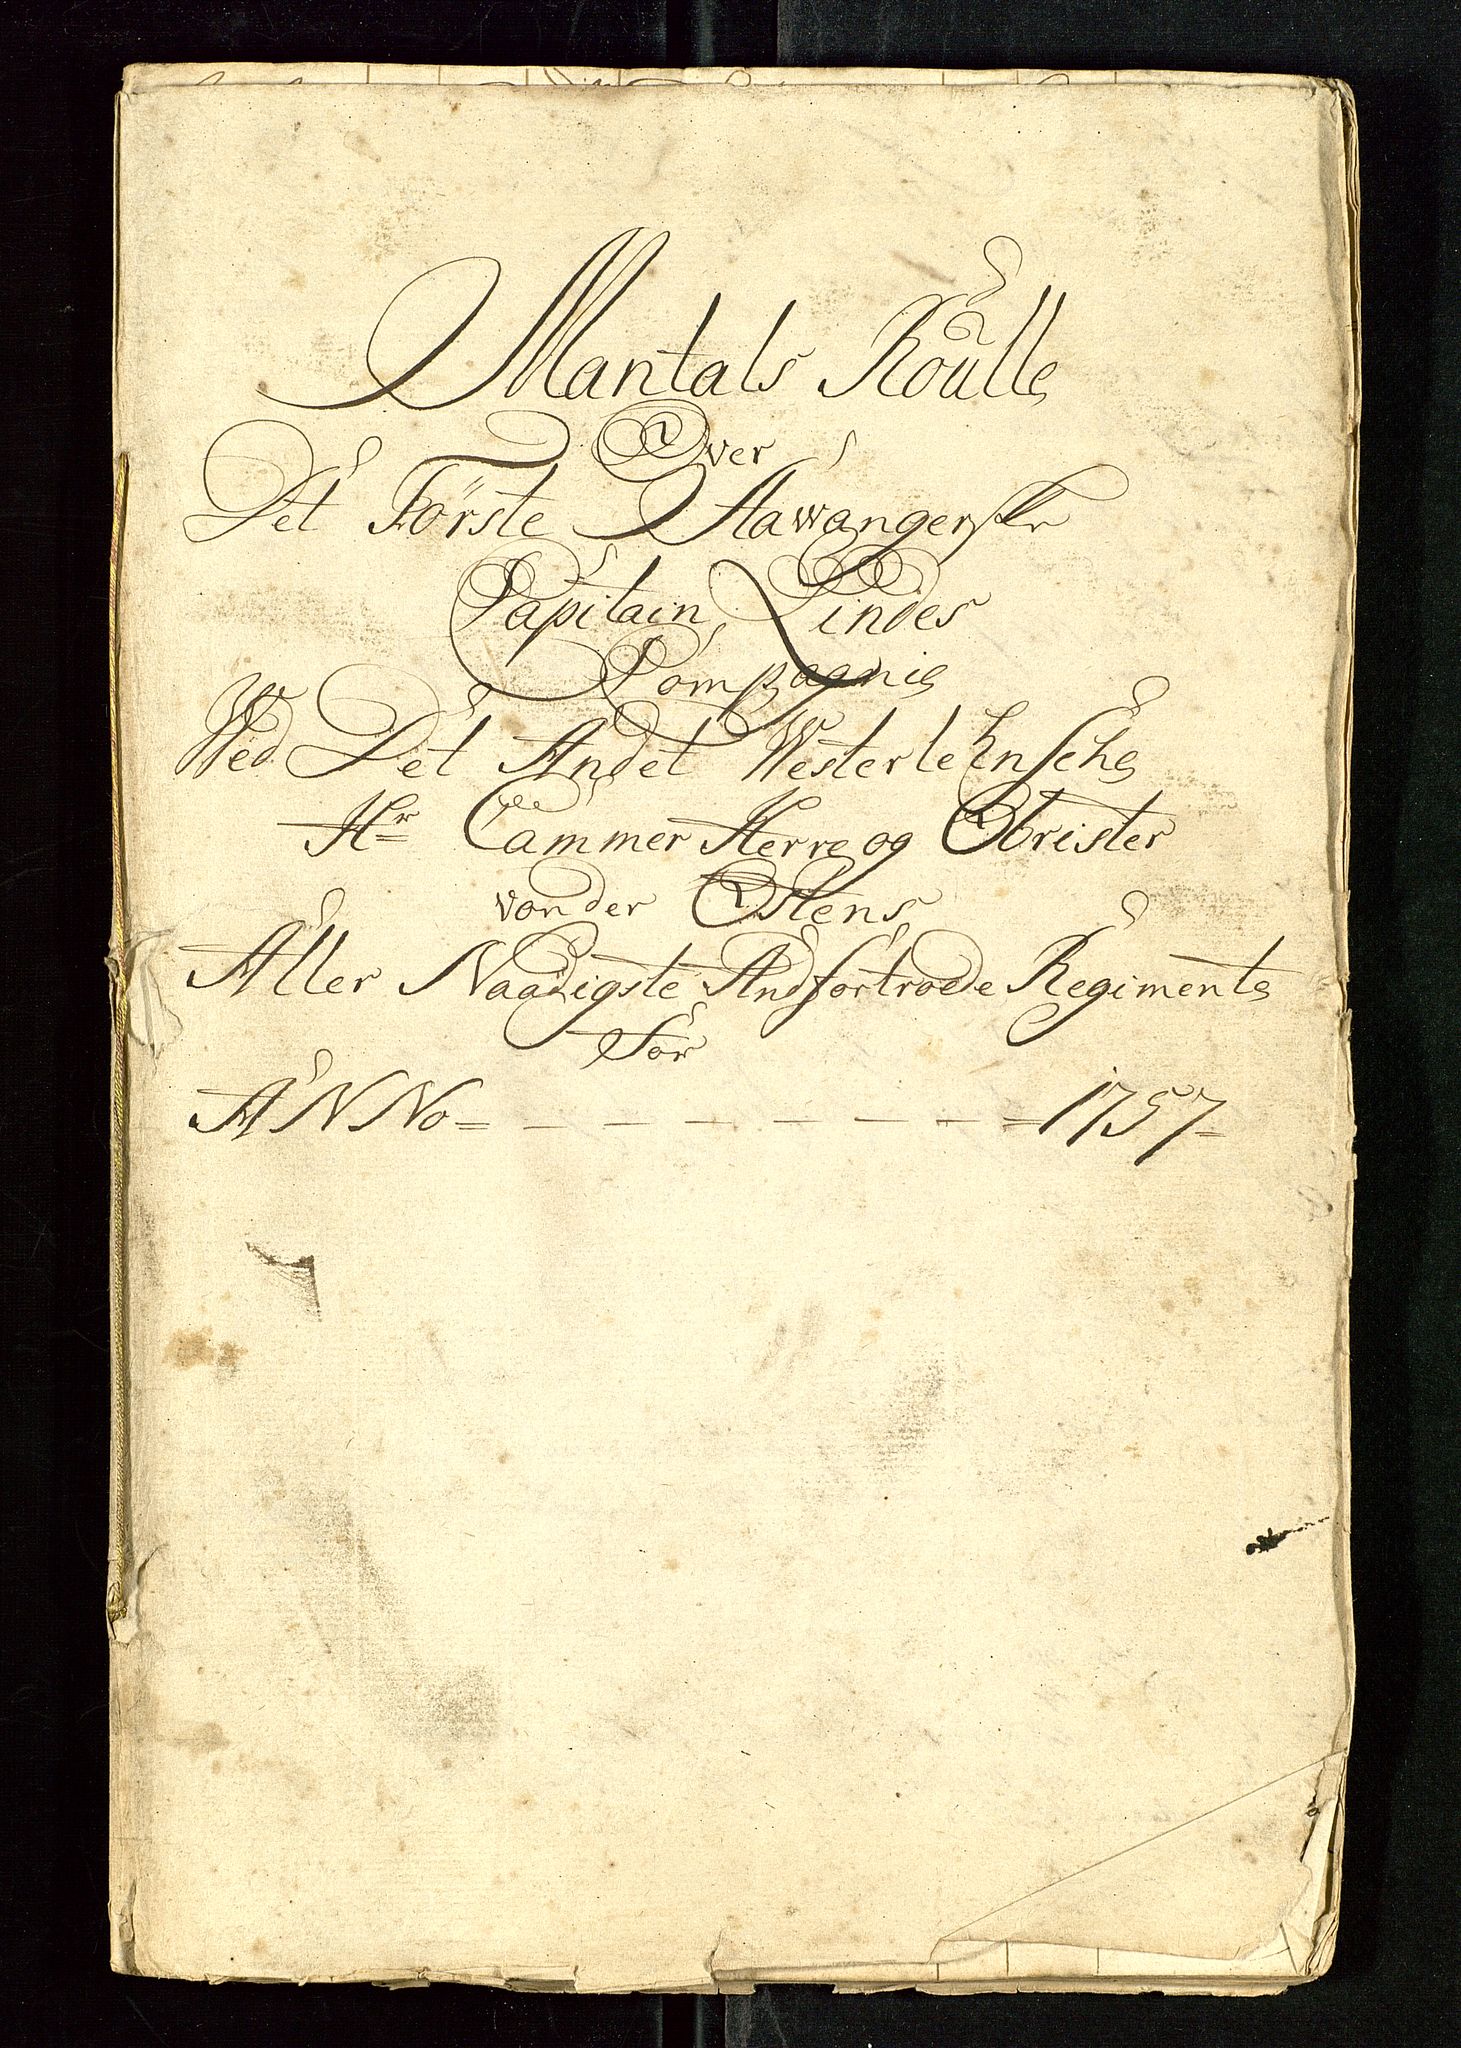 Mantals Roulle
Over
Det Förste Stawangerske
Capitain Lindes
Compagnie
Wed Det Andet Westerlehnsche
Hr Cammer Herre og Obrister
von der Ostens
Aller Naadigste Andfortroede Regimente
For
ANNo = - - - - - - - - = 1757 =